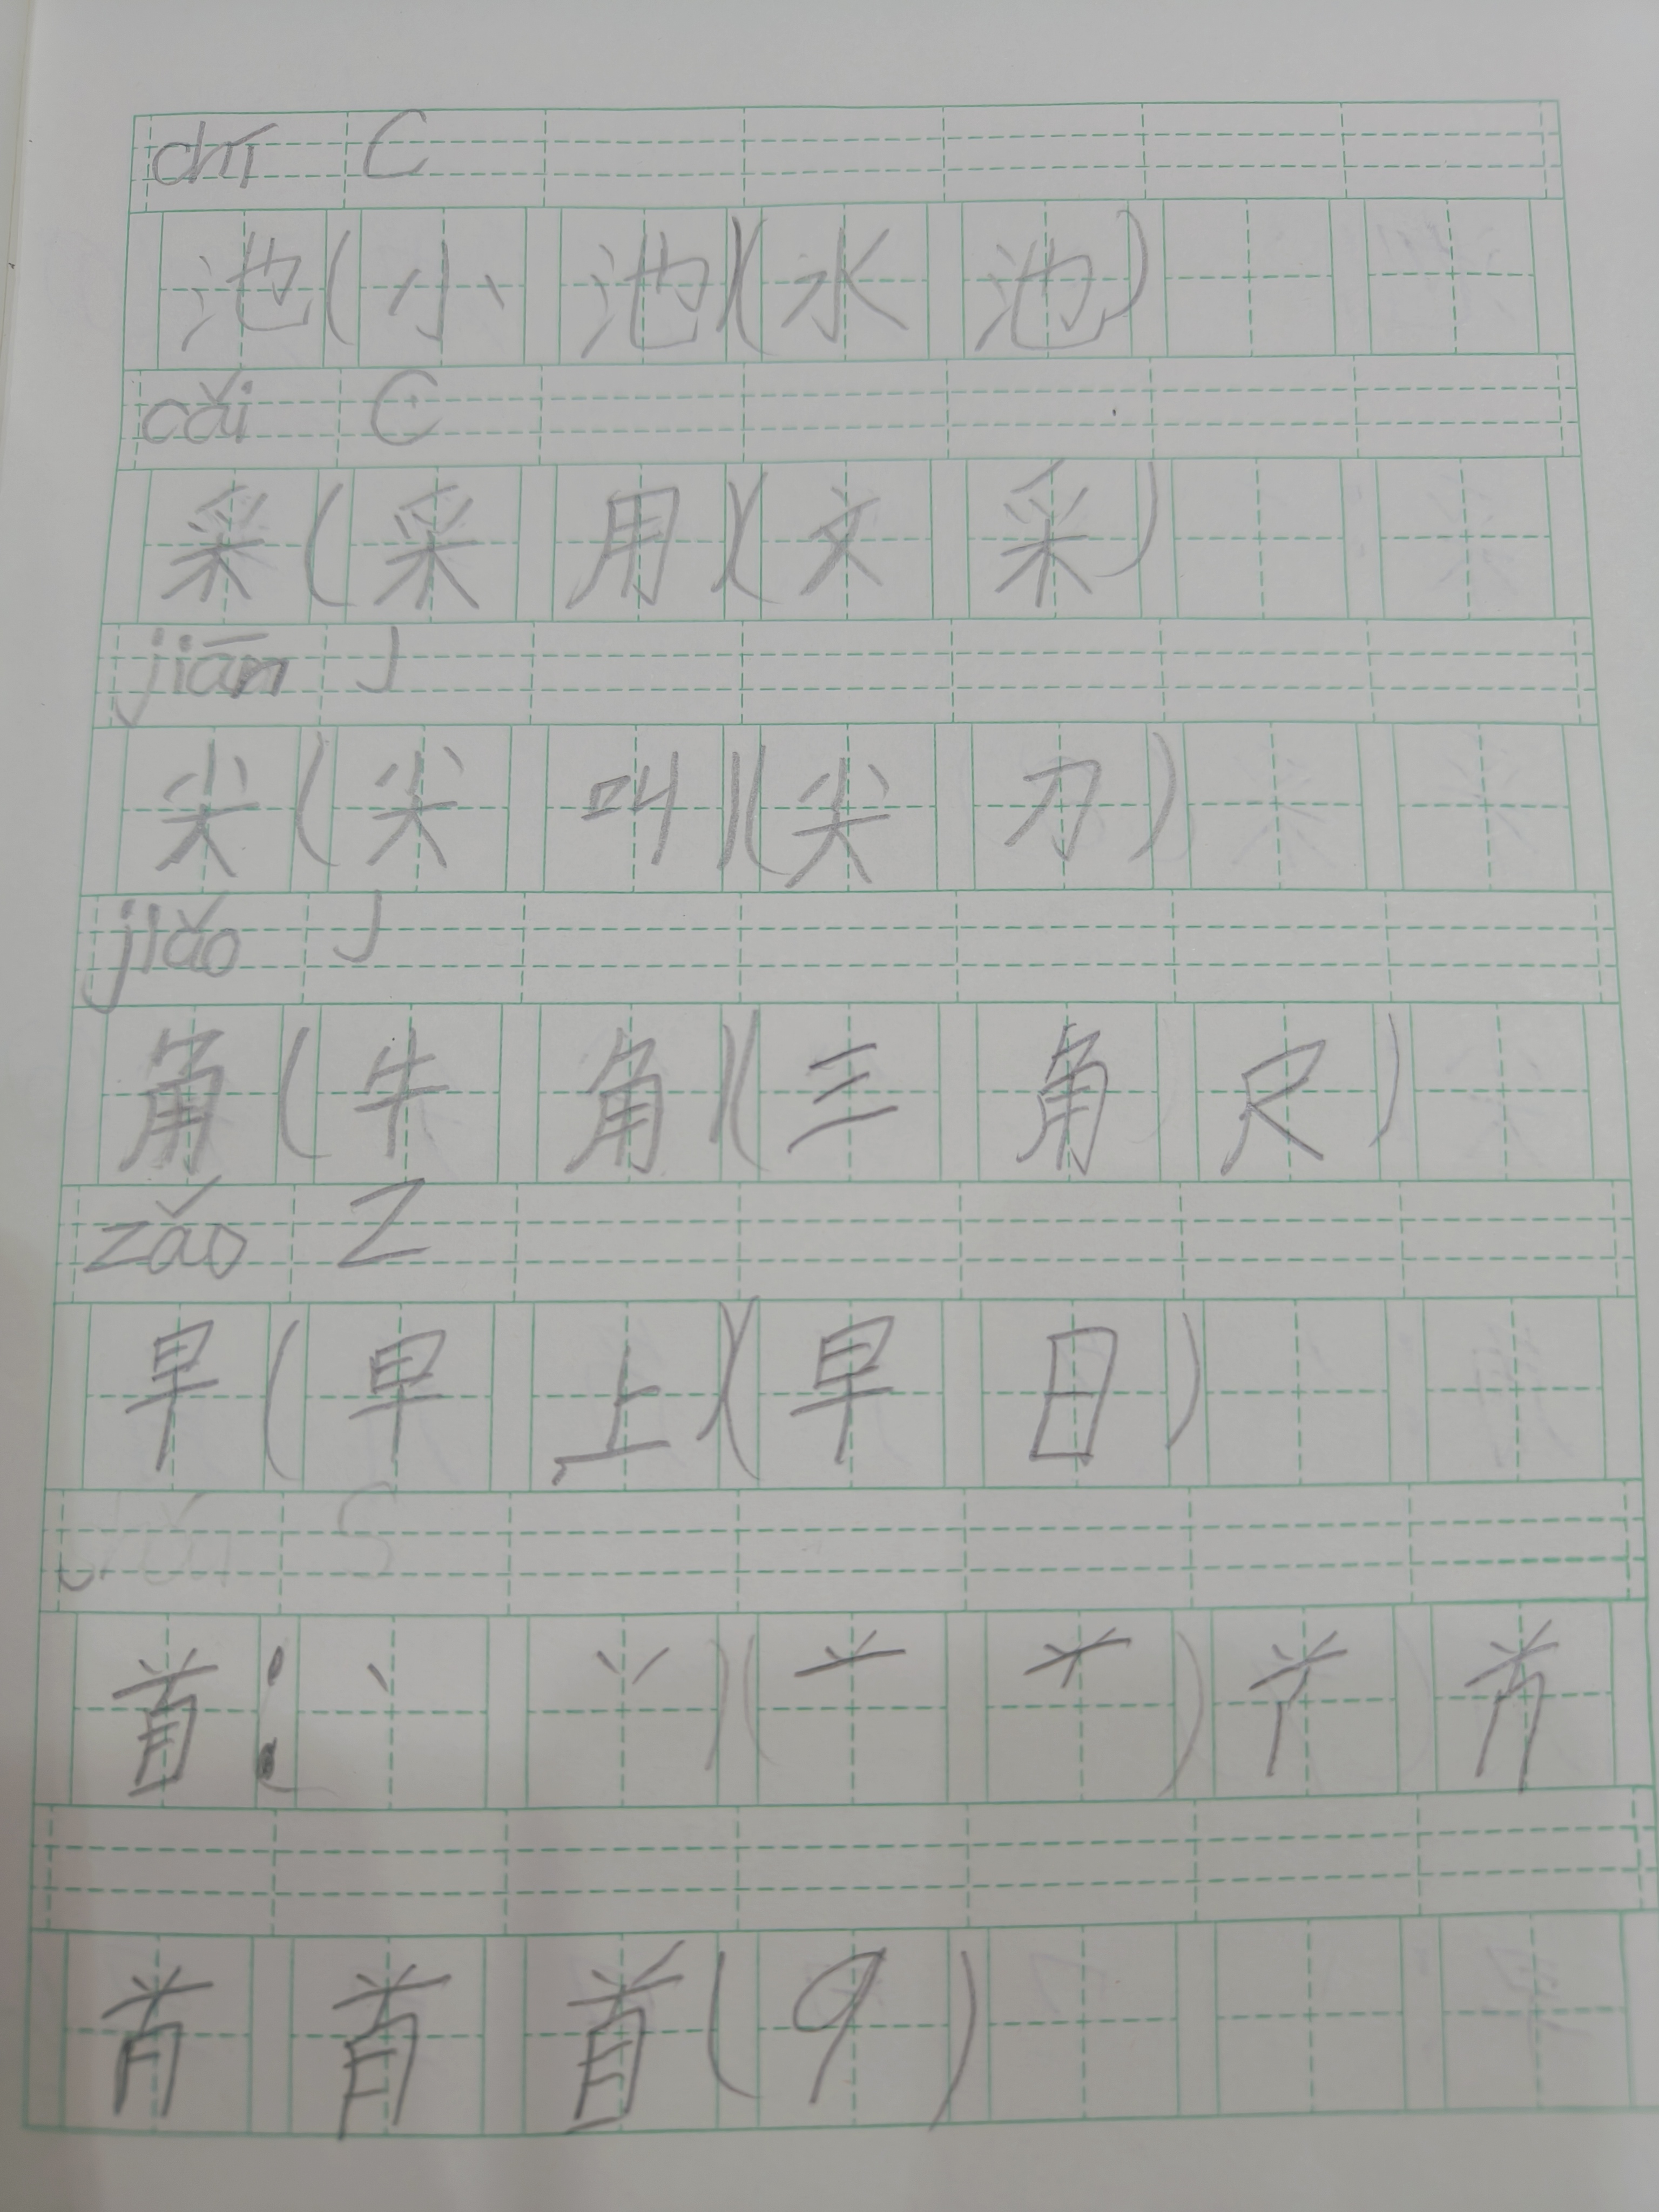 chí C
池(小池)(水池)
cǎi C
采(采用)(文采)
jiān J
尖(尖叫)(尖刀)
jiǎo J
角(牛角)(三角尺)
zǎo Z
早(早上)(早日)
首
首(9)